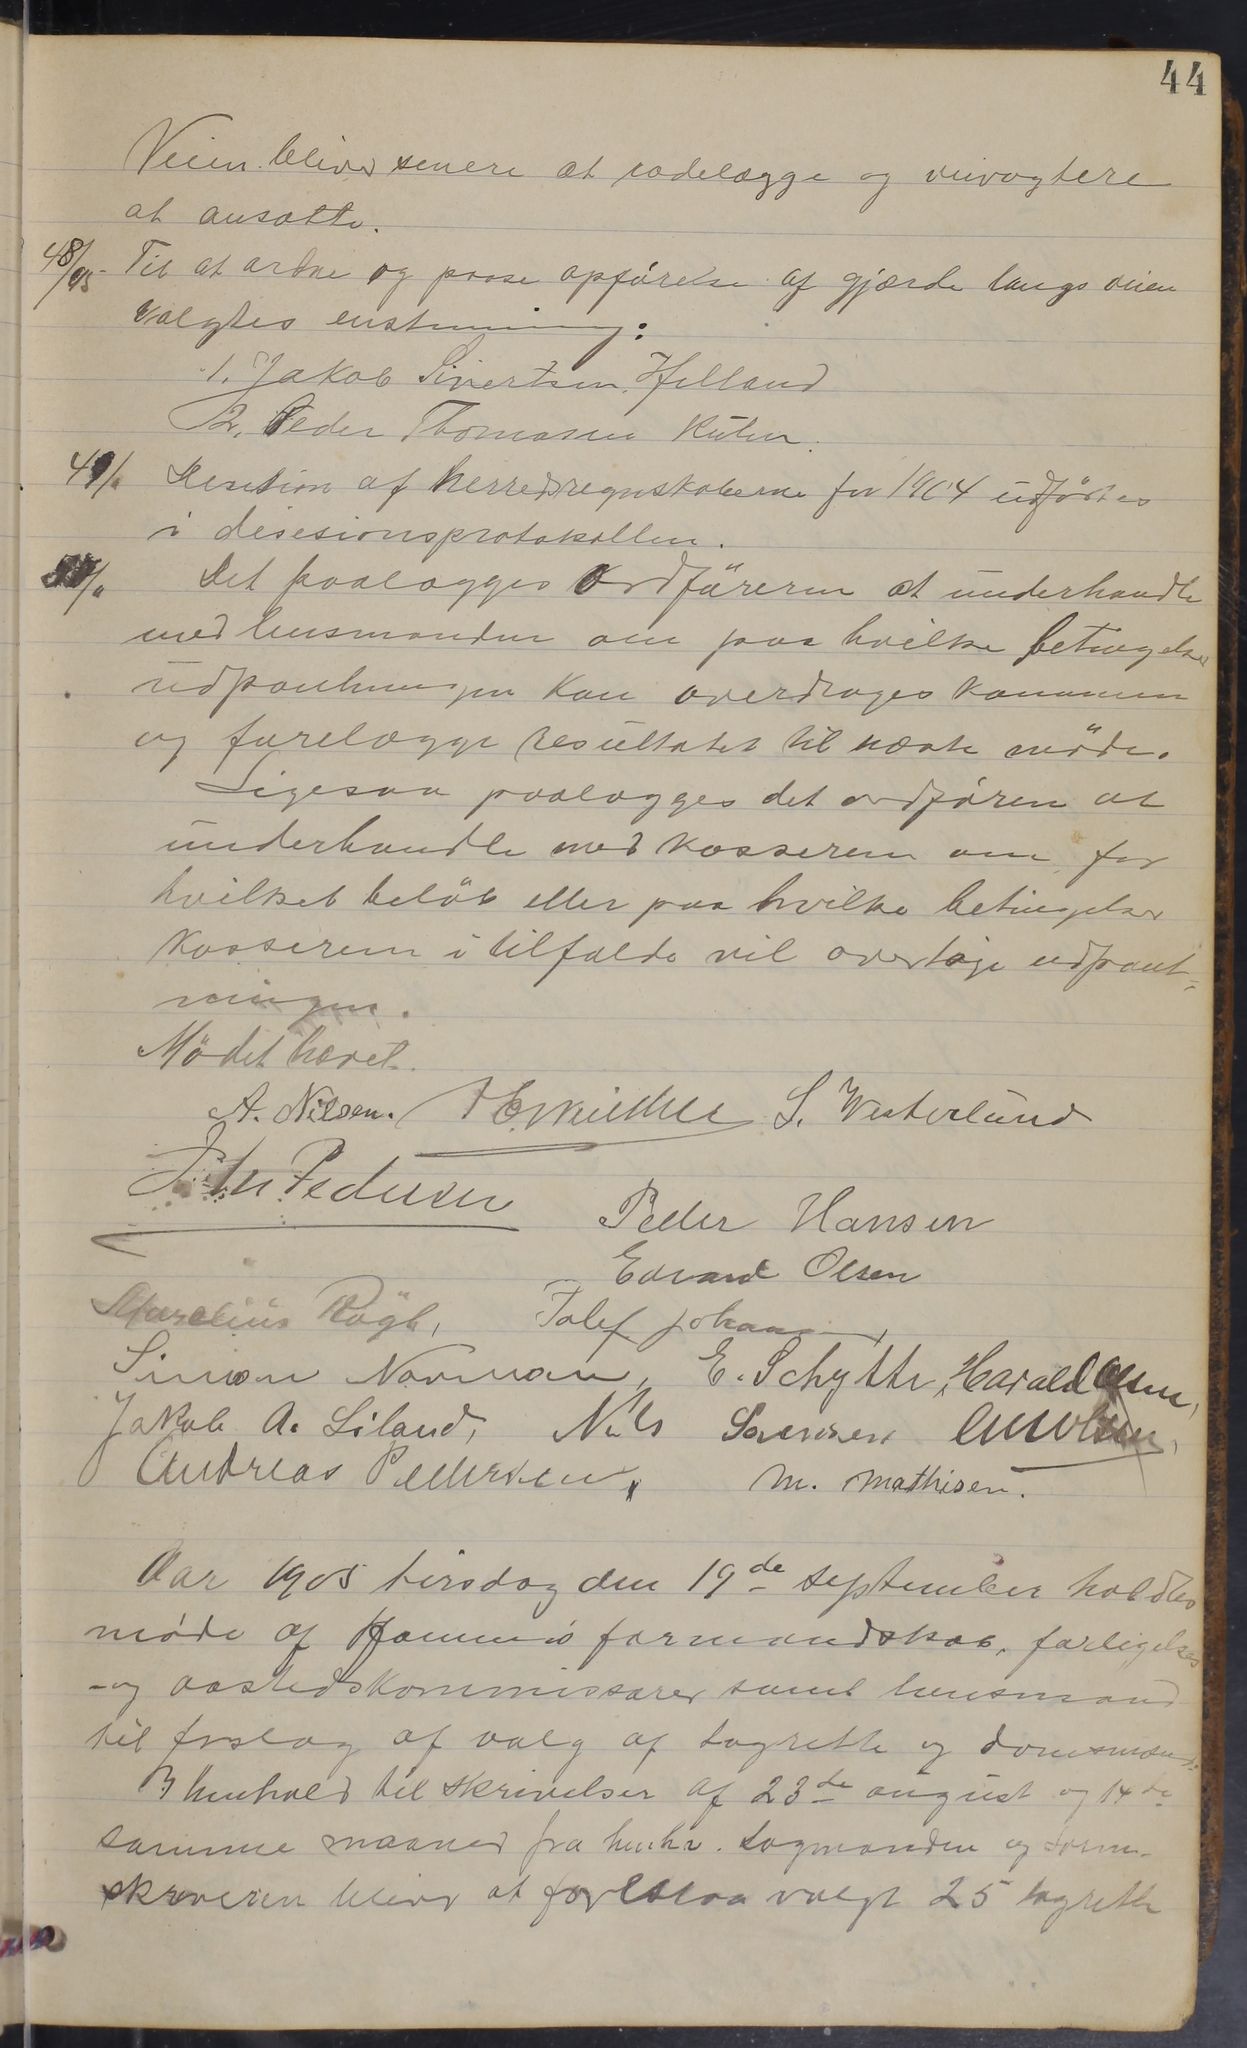 44
Veien bliver senere at rodelægge og veivogtere
at ansætte.
48/05 Til at ordne og passe opförelse af gjærde langs veien
valgtes enstemmig:
1. Jakob Sivertsen Helland
2. Peder Thomasen
49/ Desision af herredsregnskaberne for 1904 udförtes
i desesionsprotokollen.
Det paalægges Ordföreren at underhandle
med lensmanden om paa hvilke betingelser
udpantningen kan overdrages kommunen
og forelægge resultatet til næste möde.
Ligesaa paalægges det ordfören at
underhandle med kassereren om for
hvilket belöb eller paa hvilke betingelser
kassereren i tilfælde vil overtage udpant-
ningen.
Mödet hævet.
A. Nilsen. S. Westerlund
Peter Pedersen
Peder Hansen
Edvard Olsen
Marelius Bögh, Tolef Johansen,
Simon Norman, E. Schytte, Harald Olsen,
Jakob A. Liland, Nils Sörensen
Andreas Pedersen, M. Mathisen.
Aar 1905 tirsdag den 19de september holdtes
möde af Hammerö formandskab, forligelses
-og aastedskommissærer samt lensmand
til forslag af valg af lagrette og domsmænd.
I henhold til skrivelser af 23de august og 14de
samme maaned fra henhv. lagmanden og soren-
skriveren bliver at foreslaa valgt 25 lagrette